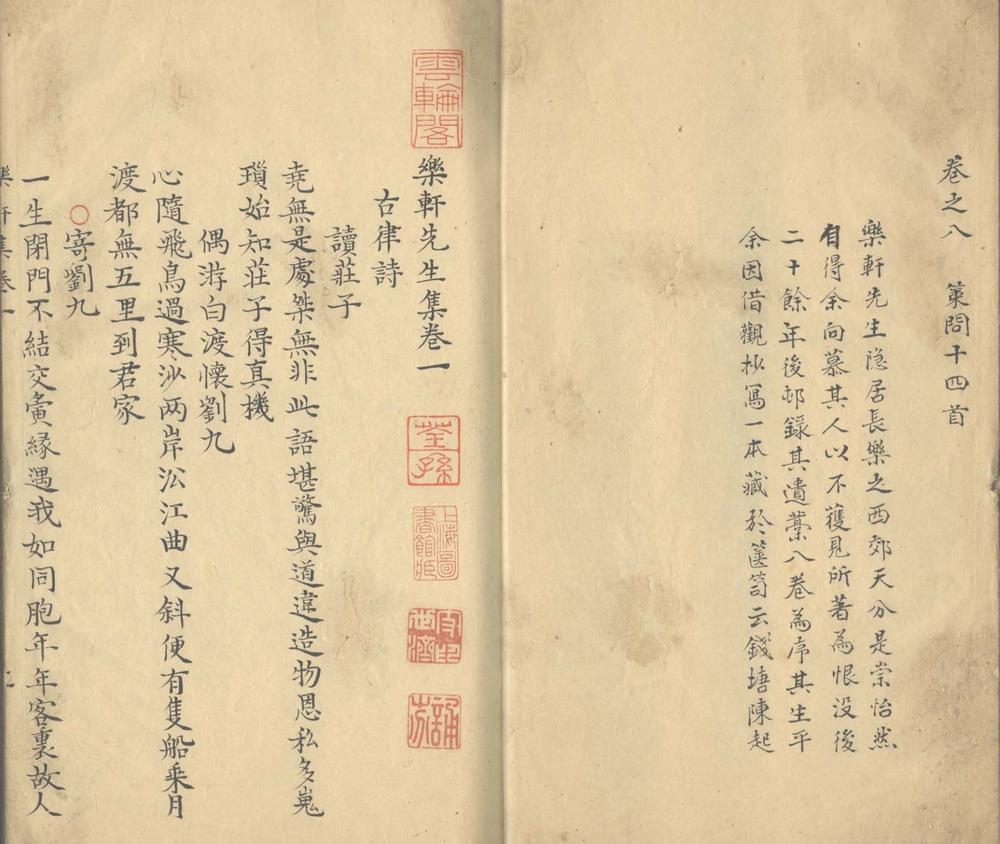 卷之八　策問十四首
樂軒先生隐居長樂之西郊天分是崇怡然
自得余向慕其人以不獲見所著為恨没後
二十餘年後邨錄其遺藁八卷為序其生平
余因借觀抄寫一本藏於篋笥云錢塘陳起
雲輪閣
樂軒先生集卷一
荃孫
上海圖書館藏
古律詩
讀莊子
堯無是處桀無非此語堪驚與道違造物恩私多嵬
瑣始知莊子得真機
偶游白渡懷劉九
心隨飛鳥過寒沙两岸㳂江曲又斜便有隻船乘月
渡都無五里到君家
寄劉九
一生閉門不結交夤緣遇我如同胞年年客裏故人
樂軒集卷一